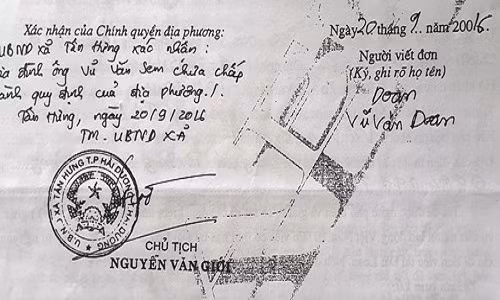 Xác nhận của Chính quyền địa phương:
UBND xã Tân Hưng xác nhận:
gia đình ông Vũ Văn Sem chưa chấp
hành quy định của địa phương./.
Tân Hưng, ngày 20/9/2016
TM. UBND XÃ
U.B.N.D XÃ TÂN HƯNG T.P HẢI DƯƠNG T. HẢI DƯƠNG
CHỦ TỊCH
NGUYỄN VĂN GIỚI
Ngày 20 tháng 9 năm 2006.
Người viết đơn
(Ký, ghi rõ họ tên)
Doan
Vũ Văn Doan